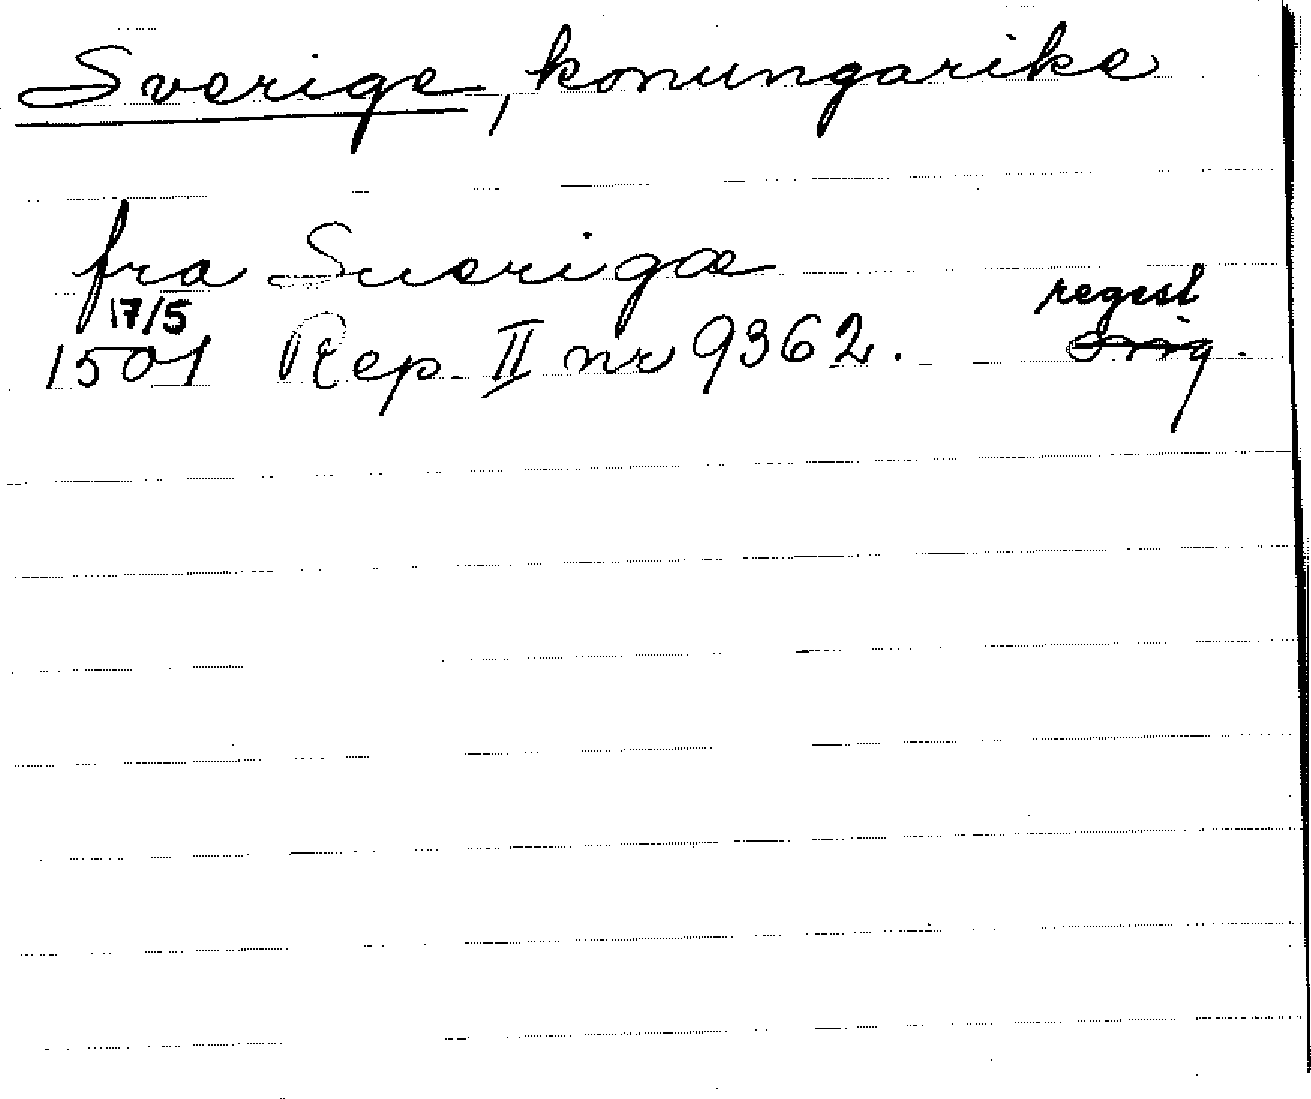 Sverige, konungarike
fra Suerigæ
17/5 regest
1501 Rep. II nr 9362. orig.